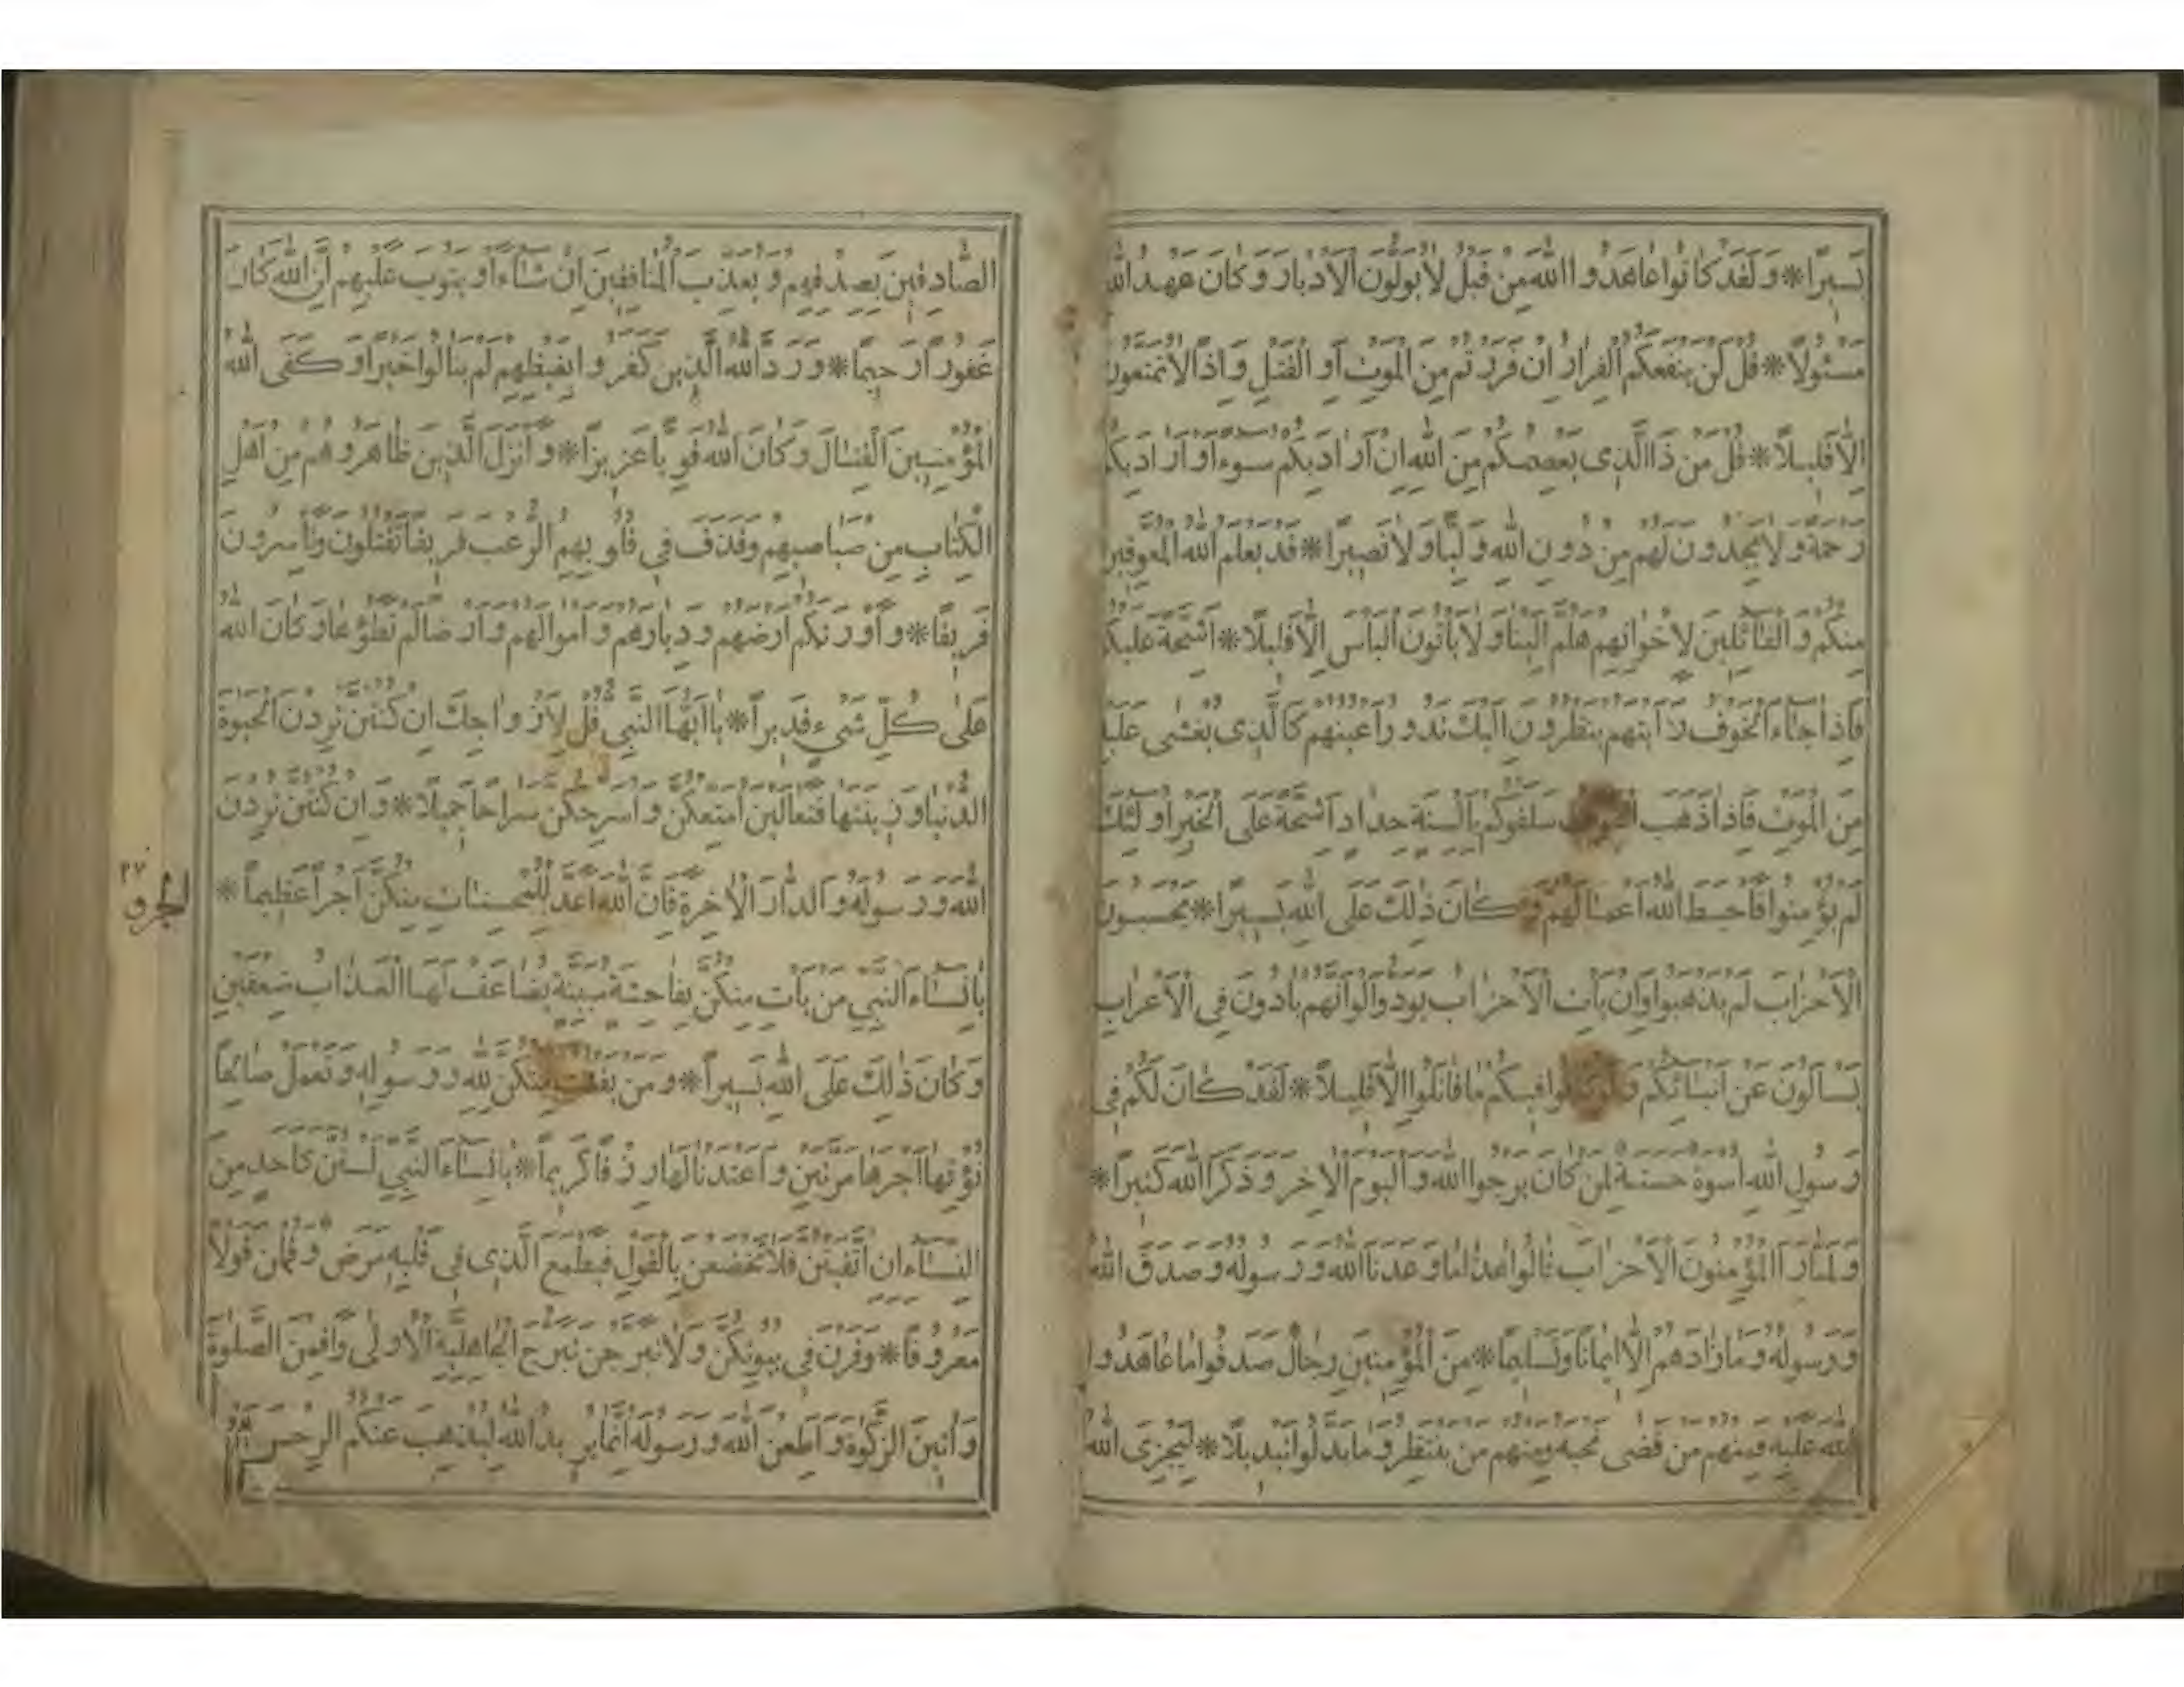 يَسِيرًا * وَلَقَدْ كَانُوا عَاهَدُوا اللّٰهَ مِنْ قَبْلُ لَا يُوَلُّونَ الْاَدْبَارَ وَكَانَ عَهْدُ اللّٰهِ
مَسْئُولًا * قُلْ لَنْ يَنْفَعَكُمُ الْفِرَارُ اِنْ فَرَرْتُمْ مِنَ الْمَوْتِ اَوِ الْقَتْلِ وَاِذًا لَا تُمَتَّعُونَ
اِلَّا قَلِيلًا * قُلْ مَنْ ذَا الَّذِى يَعْصِمُكُمْ مِنَ اللّٰهِ اِنْ اَرَادَ بِكُمْ سُوءًا اَوْ اَرَادَ بِكُمْ
رَحْمَةً وَلَا يَجِدُونَ لَهُمْ مِنْ دُونِ اللّٰهِ وَلِيًّا وَلَا نَصِيرًا * قَدْ يَعْلَمُ اللّٰهُ الْمُعَوِّقِينَ
مِنْكُمْ وَالْقَائِلِينَ لِاِخْوَانِهِمْ هَلُمَّ اِلَيْنَا وَلَا يَأْتُونَ الْبَأْسَ اِلَّا قَلِيلًا * اَشِحَّةً عَلَيْكُمْ
فَاِذَا جَاءَ الْخَوْفُ رَاَيْتَهُمْ يَنْظُرُونَ اِلَيْكَ تَدُورُ اَعْيُنُهُمْ كَالَّذِى يُغْشٰى عَلَيْهِ
مِنَ الْمَوْتِ فَاِذَا ذَهَبَ الْخَوْفُ سَلَقُوكُمْ بِاَلْسِنَةٍ حِدَادٍ اَشِحَّةً عَلَى الْخَيْرِ اُولٰئِكَ
لَمْ يُؤْمِنُوا فَاَحْبَطَ اللّٰهُ اَعْمَالَهُمْ وَكَانَ ذٰلِكَ عَلَى اللّٰهِ يَسِيرًا * يَحْسَبُونَ
الْاَحْزَابَ لَمْ يَذْهَبُوا وَاِنْ يَأْتِ الْاَحْزَابُ يَوَدُّوا لَوْ اَنَّهُمْ بَادُونَ فِى الْاَعْرَابِ
يَسْاَلُونَ عَنْ اَنْبَائِكُمْ وَلَوْ كَانُوا فِيكُمْ مَا قَاتَلُوا اِلَّا قَلِيلًا * لَقَدْ كَانَ لَكُمْ فِى
رَسُولِ اللّٰهِ اُسْوَةٌ حَسَنَةٌ لِمَنْ كَانَ يَرْجُوا اللّٰهَ وَالْيَوْمَ الْاٰخِرَ وَذَكَرَ اللّٰهَ كَثِيرًا *
وَلَمَّا رَاَ الْمُؤْمِنُونَ الْاَحْزَابَ قَالُوا هٰذَا مَا وَعَدَنَا اللّٰهُ وَرَسُولُهُ وَصَدَقَ اللّٰهُ
وَرَسُولُهُ وَمَا زَادَهُمْ اِلَّا اِيمَانًا وَتَسْلِيمًا * مِنَ الْمُؤْمِنِينَ رِجَالٌ صَدَقُوا مَا عَاهَدُوا
اللّٰهَ عَلَيْهِ فَمِنْهُمْ مَنْ قَضٰى نَحْبَهُ وَمِنْهُمْ مَنْ يَنْتَظِرُ وَمَا بَدَّلُوا تَبْدِيلًا * لِيَجْزِىَ اللّٰهُ
الصَّادِقِينَ بِصِدْقِهِمْ وَيُعَذِّبَ الْمُنَافِقِينَ اِنْ شَاءَ اَوْ يَتُوبَ عَلَيْهِمْ اِنَّ اللّٰهَ كَانَ
غَفُورًا رَحِيمًا * وَرَدَّ اللّٰهُ الَّذِينَ كَفَرُوا بِغَيْظِهِمْ لَمْ يَنَالُوا خَيْرًا وَكَفَى اللّٰهُ
الْمُؤْمِنِينَ الْقِتَالَ وَكَانَ اللّٰهُ قَوِيًّا عَزِيزًا * وَاَنْزَلَ الَّذِينَ ظَاهَرُوهُمْ مِنْ اَهْلِ
الْكِتَابِ مِنْ صَيَاصِيهِمْ وَقَذَفَ فِى قُلُوبِهِمُ الرُّعْبَ فَرِيقًا تَقْتُلُونَ وَتَأْسِرُونَ
فَرِيقًا * وَاَوْرَثَكُمْ اَرْضَهُمْ وَدِيَارَهُمْ وَاَمْوَالَهُمْ وَاَرْضًا لَمْ تَطَؤُهَا وَكَانَ اللّٰهُ
عَلٰى كُلِّ شَىْءٍ قَدِيرًا * يَا اَيُّهَا النَّبِىُّ قُلْ لِاَزْوَاجِكَ اِنْ كُنْتُنَّ تُرِدْنَ الْحَيٰوةَ
الدُّنْيَا وَزِينَتَهَا فَتَعَالَيْنَ اُمَتِّعْكُنَّ وَاُسَرِّحْكُنَّ سَرَاحًا جَمِيلًا * وَاِنْ كُنْتُنَّ تُرِدْنَ
اللّٰهَ وَرَسُولَهُ وَالدَّارَ الْاٰخِرَةَ فَاِنَّ اللّٰهَ اَعَدَّ لِلْمُحْسِنَاتِ مِنْكُنَّ اَجْرًا عَظِيمًا *
يَا نِسَاءَ النَّبِىِّ مَنْ يَأْتِ مِنْكُنَّ بِفَاحِشَةٍ مُبَيِّنَةٍ يُضَاعَفْ لَهَا الْعَذَابُ ضِعْفَيْنِ
وَكَانَ ذٰلِكَ عَلَى اللّٰهِ يَسِيرًا * وَمَنْ يَقْنُتْ مِنْكُنَّ لِلّٰهِ وَرَسُولِهِ وَتَعْمَلْ صَالِحًا
نُؤْتِهَا اَجْرَهَا مَرَّتَيْنِ وَاَعْتَدْنَا لَهَا رِزْقًا كَرِيمًا * يَا نِسَاءَ النَّبِىِّ لَسْتُنَّ كَاَحَدٍ مِنَ
النِّسَاءِ اِنِ اتَّقَيْتُنَّ فَلَا تَخْضَعْنَ بِالْقَوْلِ فَيَطْمَعَ الَّذِى فِى قَلْبِهِ مَرَضٌ وَقُلْنَ قَوْلًا
مَعْرُوفًا * وَقَرْنَ فِى بُيُوتِكُنَّ وَلَا تَبَرَّجْنَ تَبَرُّجَ الْجَاهِلِيَّةِ الْاُولٰى وَاَقِمْنَ الصَّلٰوةَ
وَاٰتِينَ الزَّكٰوةَ وَاَطِعْنَ اللّٰهَ وَرَسُولَهُ اِنَّمَا يُرِيدُ اللّٰهُ لِيُذْهِبَ عَنْكُمُ الرِّجْسَ
الجزؤ
٢٢